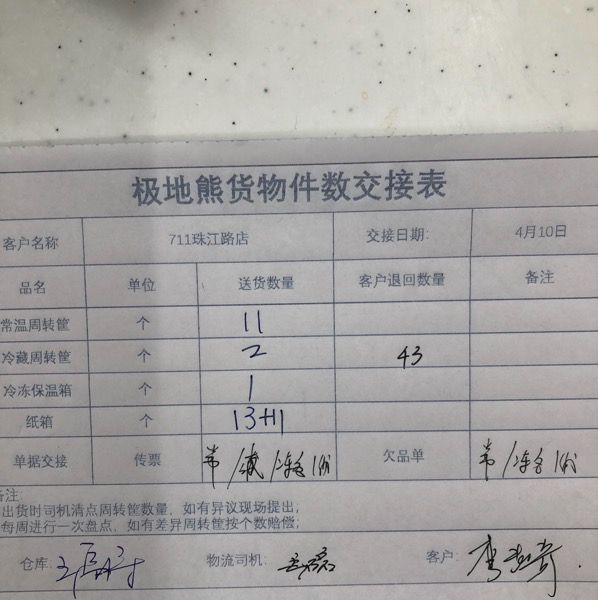 极地熊货物件数交接表
客户名称 711珠江路店 交接日期: 4月10日
品名 单位 送货数量 客户退回数量 备注
常温周转筐 个 11
冷藏周转筐 个 2 43
冷冻保温箱 个 1
纸箱 个 13+1
单据交接 传票 常/藏/冻各1份 欠品单 常/冻各1份
备注:
出货时司机清点周转筐数量，如有异议现场提出;
每周进行一次盘点，如有差异周转筐按个数赔偿;
仓库: 物流司机: 客户: